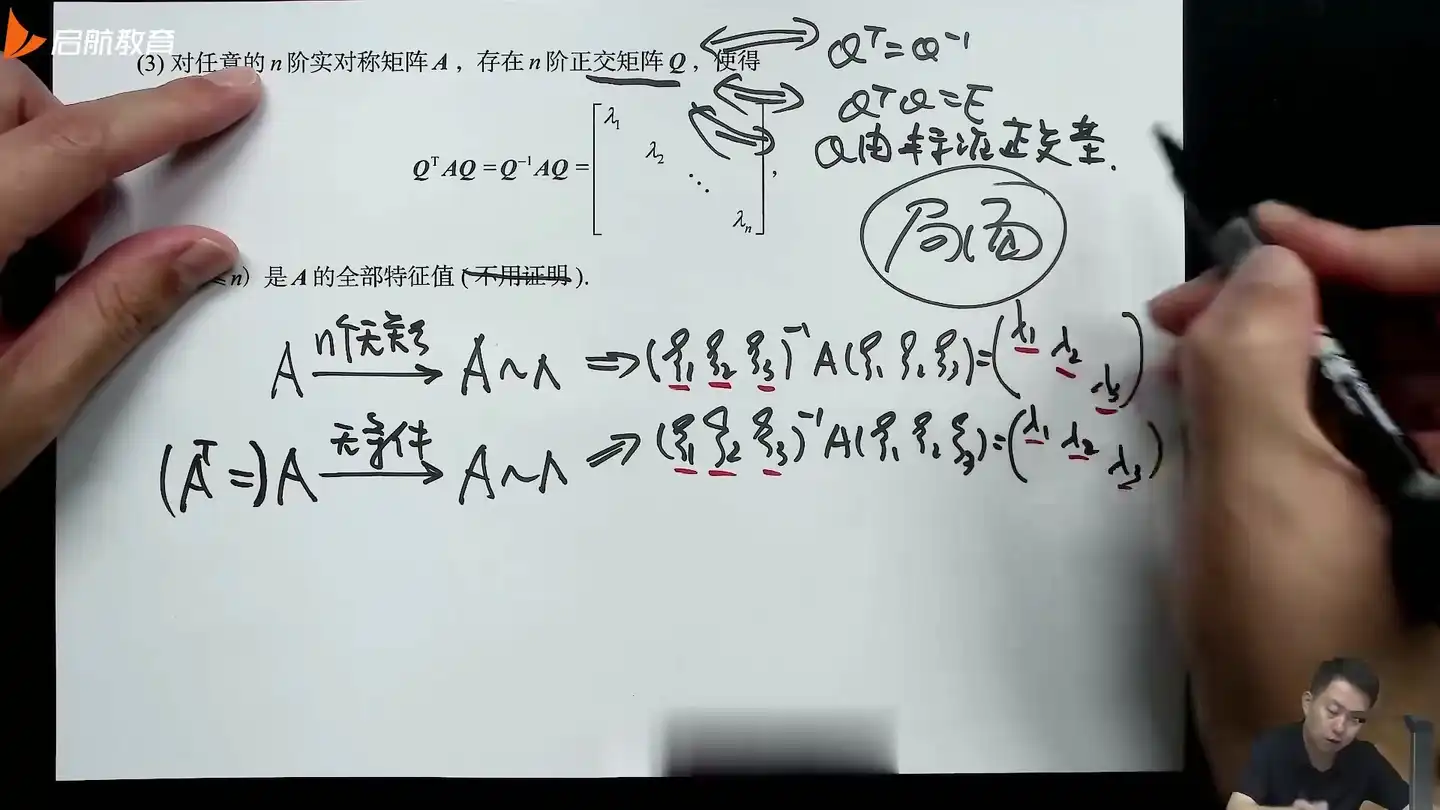 启航教育
(3) 对任意的 n 阶实对称矩阵 A，存在 n 阶正交矩阵 Q，使得
Qᵀ=Q⁻¹
QᵀQ=E
Q由标准正交基.
QᵀAQ = Q⁻¹AQ = [λ₁ λ₂ ⋱ λₙ],
局面
n) 是 A 的全部特征值 (不用证明).
A n个无关ξ → A~Λ ⇒ (ξ₁ ξ₂ ξ₃)⁻¹ A (ξ₁ ξ₂ ξ₃)=(λ₁ λ₂ λ₃)
(Aᵀ=)A 无条件 → A~Λ ⇒ (ξ₁ ξ₂ ξ₃)⁻¹ A (ξ₁ ξ₂ ξ₃)=(λ₁ λ₂ λ₃)